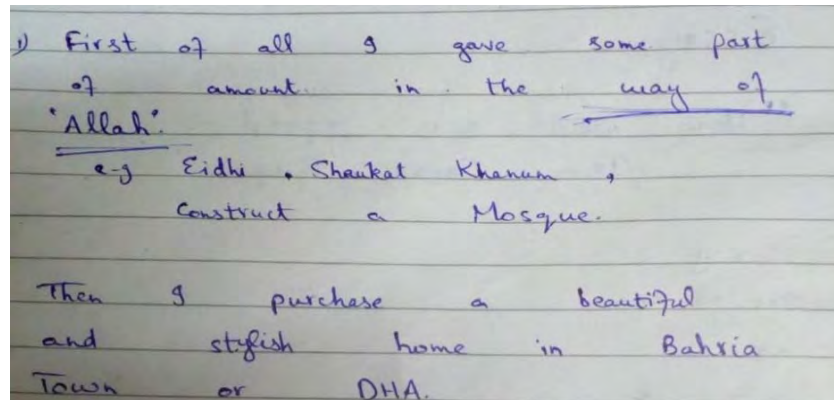 1) First of all I gave some part
of amount. in the way of
"Allah".
e-g Eidhi, Shaukat Khanum,
Construct a Mosque.
Then I purchase a beautiful
and stylish home in Bahria
Town or DHA.